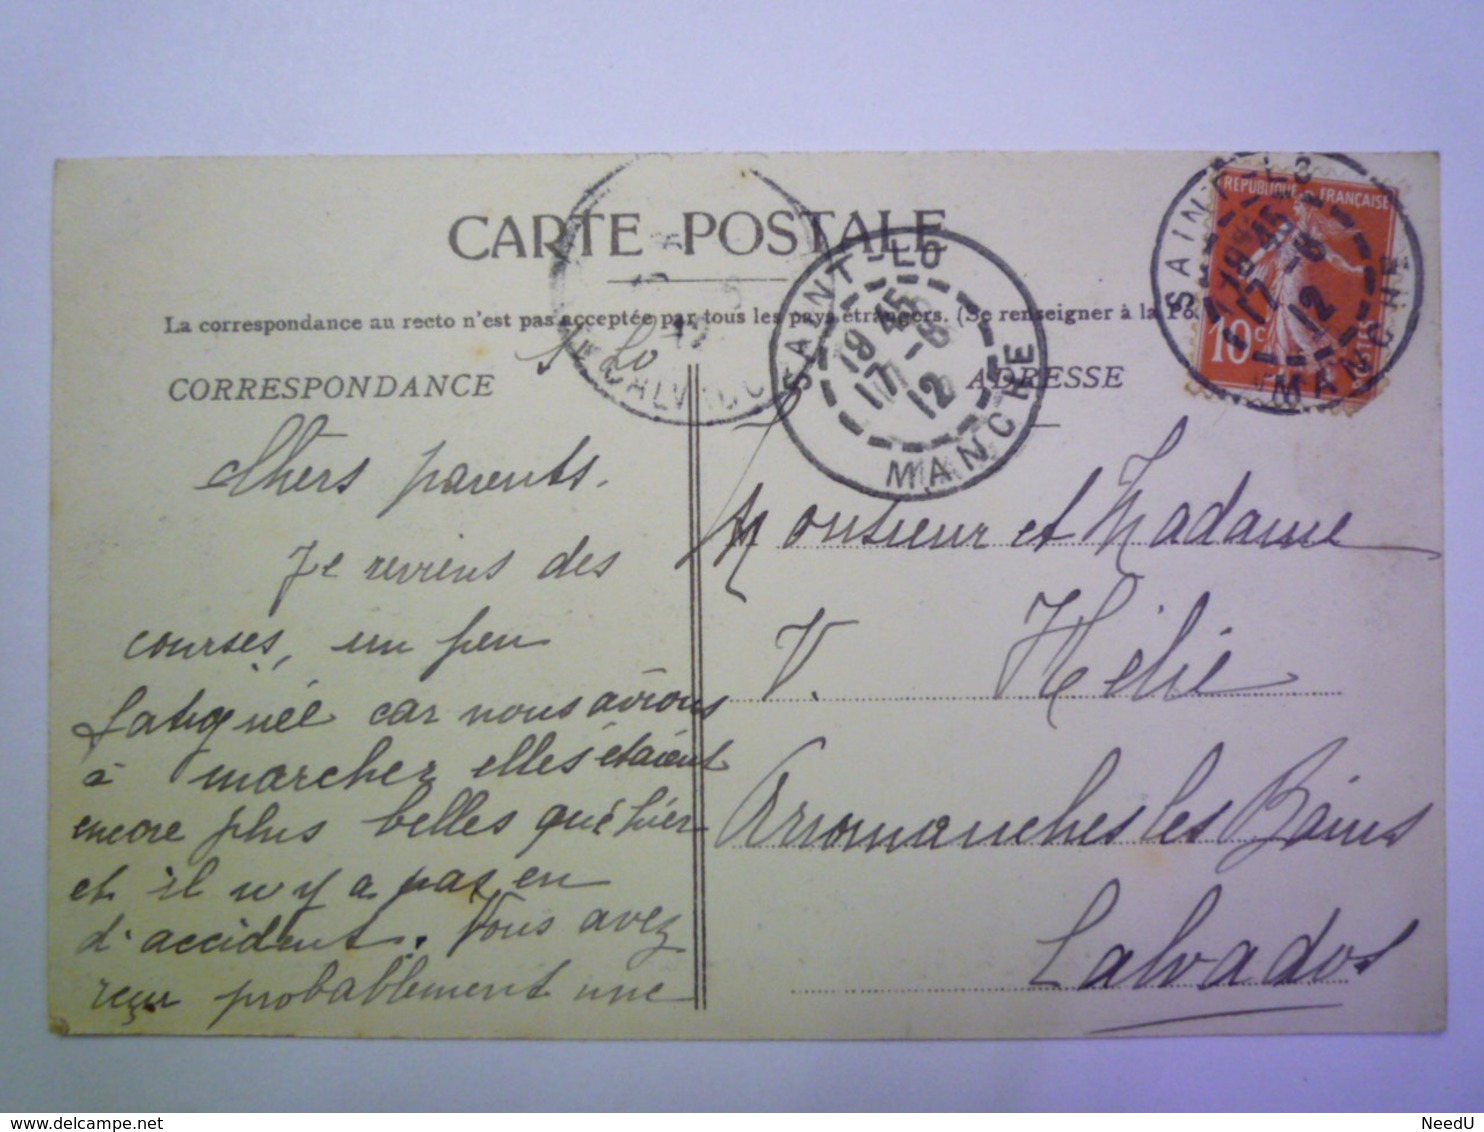 CARTE POSTALE
La correspondance au recto n'est pas acceptée par tous les pays étrangers. (Se renseigner à la Po
CORRESPONDANCE
ADRESSE
St Lo
Chers parents.
Je reviens des
courses, un peu
fatiguée car nous avions
à marcher elles étaient
encore plus belles que hier
et il n'y a pas eu
d'accident. Vous avez
reçu probablement une
Monsieur et Madame
V. Hélie
Arromanches les Bains
Calvados
SAINT-LO
19 45
17 -8
12
MANCHE
SAINT-LO
19 45
17 -8
12
MANCHE
REPUBLIQUE FRANÇAISE
10c
POSTES
CALVADOS
NeedU
delcampe.net